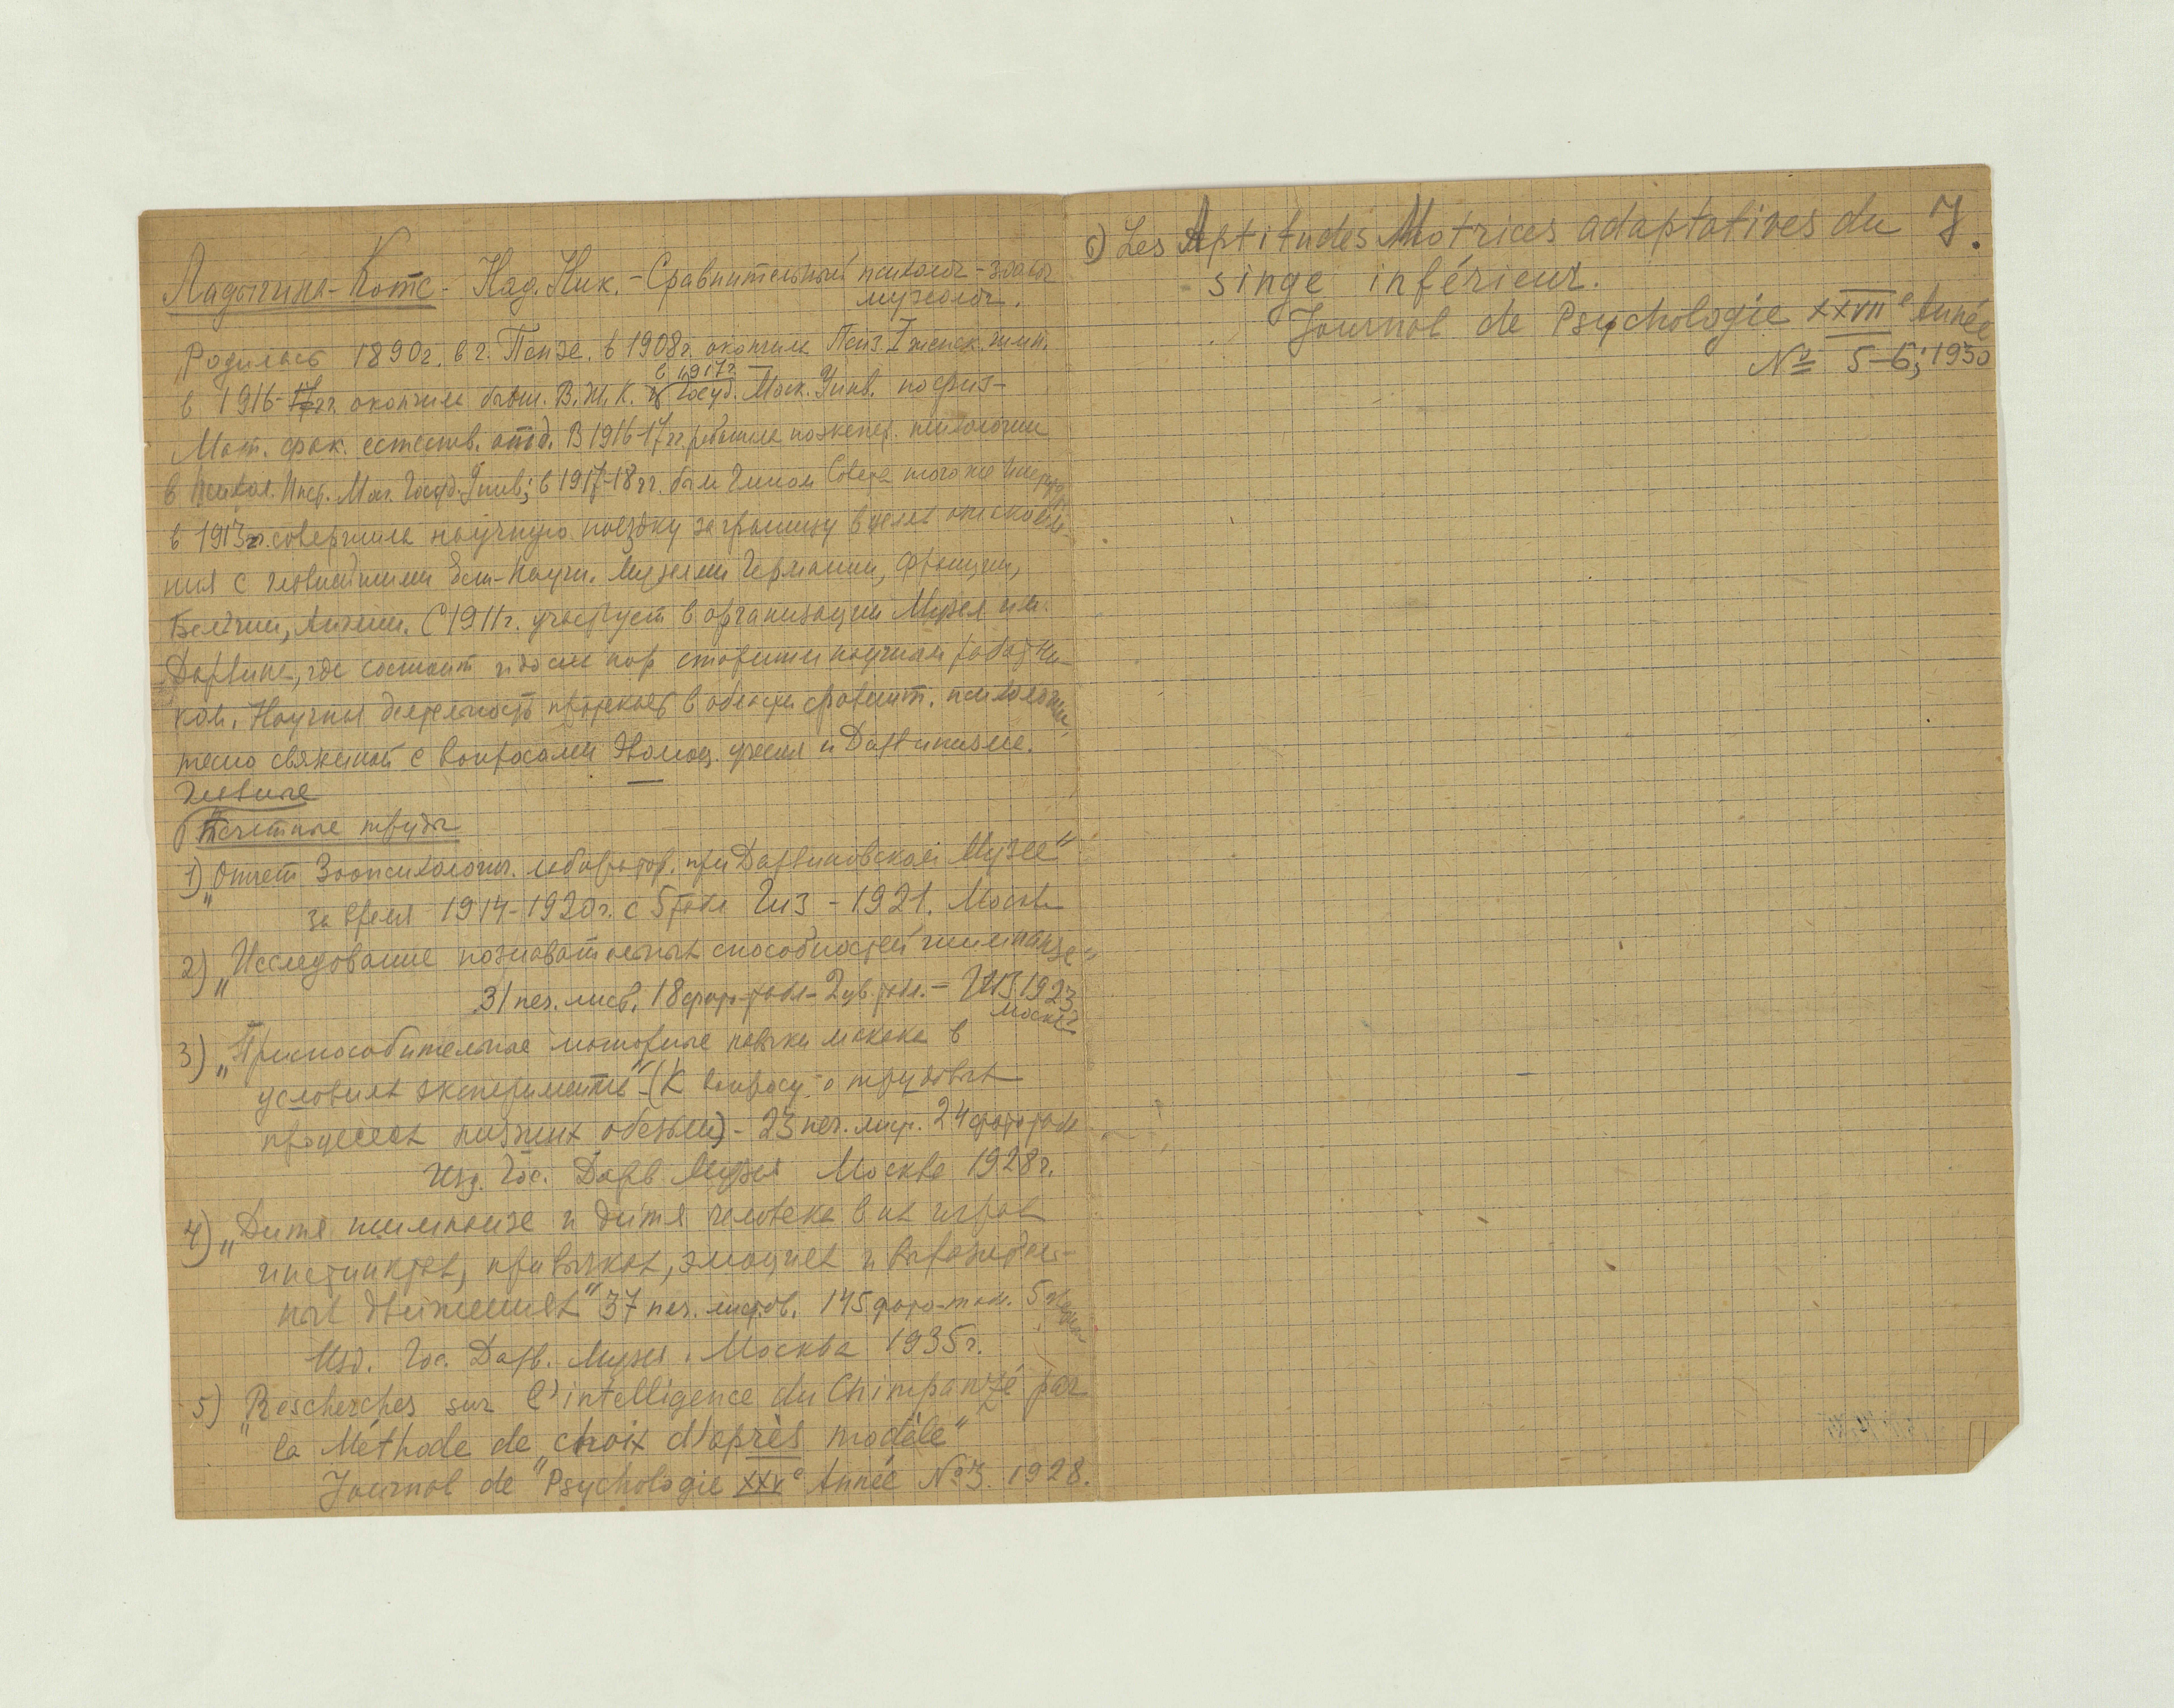 Ладыгина-Котс - Над. Ник. - Сравнительный психолог - зоолог
музеолог.
Родилась 1890г. в г. Пензе. в 1908г. окончила Пенз. I женск. гимн.
в 1917г.
в 1916-17гг. окончила бывш. В.Ж.К. и Госуд. Моск. Унив. по физ-
Мат. фак. естеств. отд. В 1916-17гг. работала по экспер. психологии
в Психол. Инст. Мос. Госуд. Унив; в 1917-18гг. была Членом Совета того же
в 1913г. совершила научную поездку за границу в целях ознакомле-
ния с главнейшими Ест-Научн. Музеями Германии, Франции,
Бельгии, Англии. С 1911г. участвует в организации Музея им.
Дарвина, где состоит и до сих пор старшим научным работни-
ком. Научная деятельность протекает в области сравнит. психологии,
тесно связанной с вопросами Эволюц. учения и Дарвинизма.
Главные
Печатные труды
1) „Отчет Зоопсихологич. лаборатор. при Дарвиновском Музее"
за время 1914-1920г. с 5 табл. Гиз - 1921. Москва
2) „Исследование познавательных способностей шимпанзе"
31 печ. лист. 18 фото-табл. - 2 цв. табл. - ГИЗ 1923
Москва
3) „Приспособительные моторные навыки макака в
условиях эксперимента" - (К вопросу о трудовых
процессах низших обезьян) - 23 печ. лист. 24 фото табл
Изд. Гос. Дарв Музея Москва 1928г.
4) „Дитя шимпанзе и дитя человека в их играх
инстинктах, привычках, эмоциях и выразитель-
ных движениях" 37 печ. листов. 145 фото-таб. 5
Изд. Гос. Дарв. Музея. Москва 1935г.
5) „Rescherches sur l'intelligence du Chimpanzé par
la Méthode de „choix d'après modèle"
Journal de Psychologie XXVe Année No3. 1928.
6) Les Aptitudes Motrices adaptatives du 7.
singe inférieur.
Journal de Psychologie XXVIIe Année
No 5-6; 1930